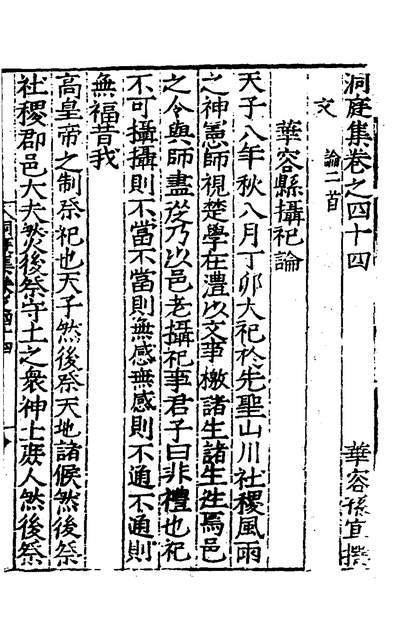 洞庭集卷之四十四
華容孫宜撰
文
論二首
華容縣攝祀論
天子八年秋八月丁卯大祀於先聖山川社稷風雨
之神憲師視楚學在澧以文事檄諸生諸生徃焉邑
之令與師盡從乃以邑老攝祀事君子曰非禮也祀
不可攝攝則不當不當則無感無感則不通不通則
無福昔我
高皇帝之制祭祀也天子然後祭天地諸侯然後祭
社稷郡邑大夫然後祭守土之衆神士庶人然後祭